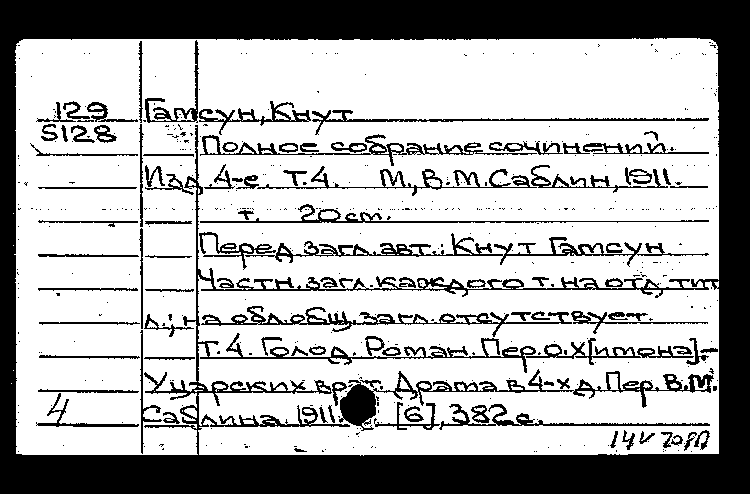 129 Гамсун, Кнут
S128
Полное собрание сочинений.
Изд. 4-е. Т.4. М., В.М.Саблин, 1911.
т. 20 cm.
Перед загл. авт.: Кнут Гамсун
Частн. загл. каждого т. на отд. тит
л.; на обл. общ. загл. отсутствует.
Т.4. Голод. Роман. Пер. О. Х[имона].-
У царских врат. Драма в 4-х д. Пер. В.М.
4 Саблина. 1911. [6], 382 с.